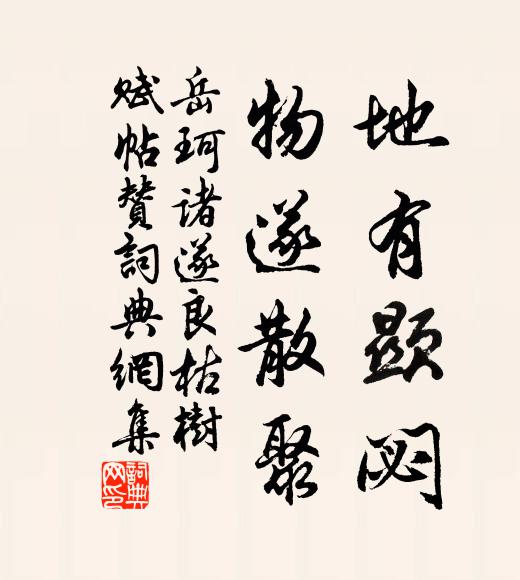 地有顯閟
物遂散聚
岳珂諸遂良枯樹
賦帖贊詞典網集
詞典网印